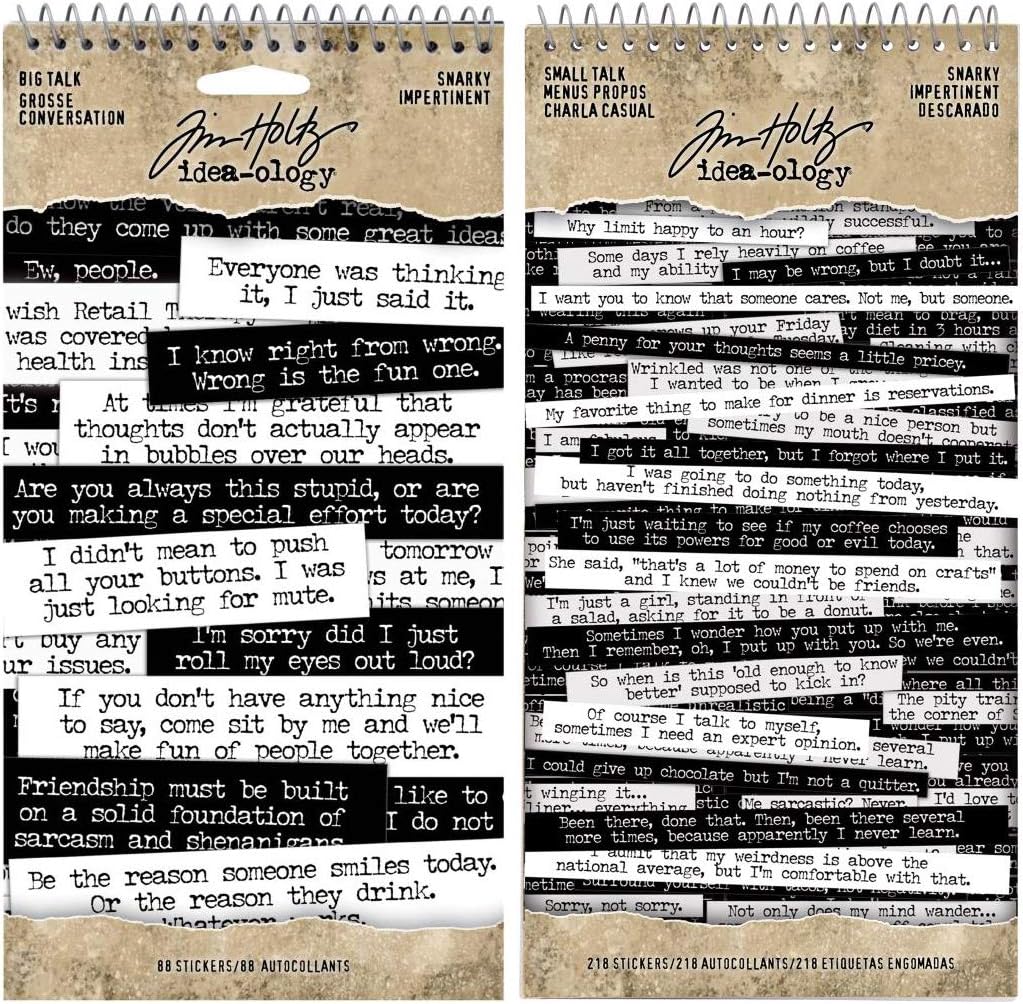 BIG TALK
GROSSE
CONVERSATION
SNARKY
IMPERTINENT
Tim Holtz
idea-ology
do they come up with some great ideas
Ew, people.
Everyone was thinking
it, I just said it.
wish Retail
was covered
health ins
I know right from wrong.
Wrong is the fun one.
It's
At times I'm grateful that
thoughts don't actually appear
in bubbles over our heads.
I wou
Are you always this stupid, or are
you making a special effort today?
I didn't mean to push
all your buttons. I was
just looking for mute.
tomorrow
s at me, I
its someon
buy any
ur issues.
I'm sorry did I just
roll my eyes out loud?
If you don't have anything nice
to say, come sit by me and we'll
make fun of people together.
Friendship must be built
on a solid foundation of
sarcasm and shenanigans
like to
I do not
Be the reason someone smiles today.
Or the reason they drink.
Whatever works.
88 STICKERS/88 AUTOCOLLANTS
SMALL TALK
MENUS PROPOS
CHARLA CASUAL
SNARKY
IMPERTINENT
DESCARADO
Tim Holtz
idea-ology
From a
wildly successful.
Why limit happy to an hour?
Some days I rely heavily on coffee
and my ability
I may be wrong, but I doubt it...
I want you to know that someone cares. Not me, but someone.
wearing this again
mean to brag, but
ws up your Friday
ay diet in 3 hours a
Tuesday.
A penny for your thoughts seems a little pricey.
Wrinkled was not one of the
I wanted to be when I grew
a procras
ay has been
My favorite thing to make for dinner is reservations.
classified a
ry to be a nice person but
sometimes my mouth doesn't cooperat
I am fabulous
I got it all together, but I forgot where I put it.
I was going to do something today,
but haven't finished doing nothing from yesterday.
would
I'm just waiting to see if my coffee chooses
to use its powers for good or evil today.
n that.
She said, "that's a lot of money to spend on crafts"
and I knew we couldn't be friends.
I'm just a girl, standing in front of
a salad, asking for it to be a donut.
Sometimes I wonder how you put up with me.
Then I remember, oh, I put up with you. So we're even.
ew we couldn't
So when is this 'old enough to know
better' supposed to kick in?
where all thi
unrealistic
being a "di
The pity train
the corner of S
Of course I talk to myself,
sometimes I need an expert opinion.
several
more times, because apparently I never learn.
I could give up chocolate but I'm not a quitter.
already
t winging it...
liner...everything
Me sarcastic? Never.
I'd love t
Been there, done that. Then, been there several
more times, because apparently I never learn.
I admit that my weirdness is above the
national average, but I'm comfortable with that.
Surround yourself with tacos, not negativity
Sorry, not sorry.
Not only does my mind wander...
218 STICKERS/218 AUTOCOLLANTS/218 ETIQUETAS ENGOMADAS